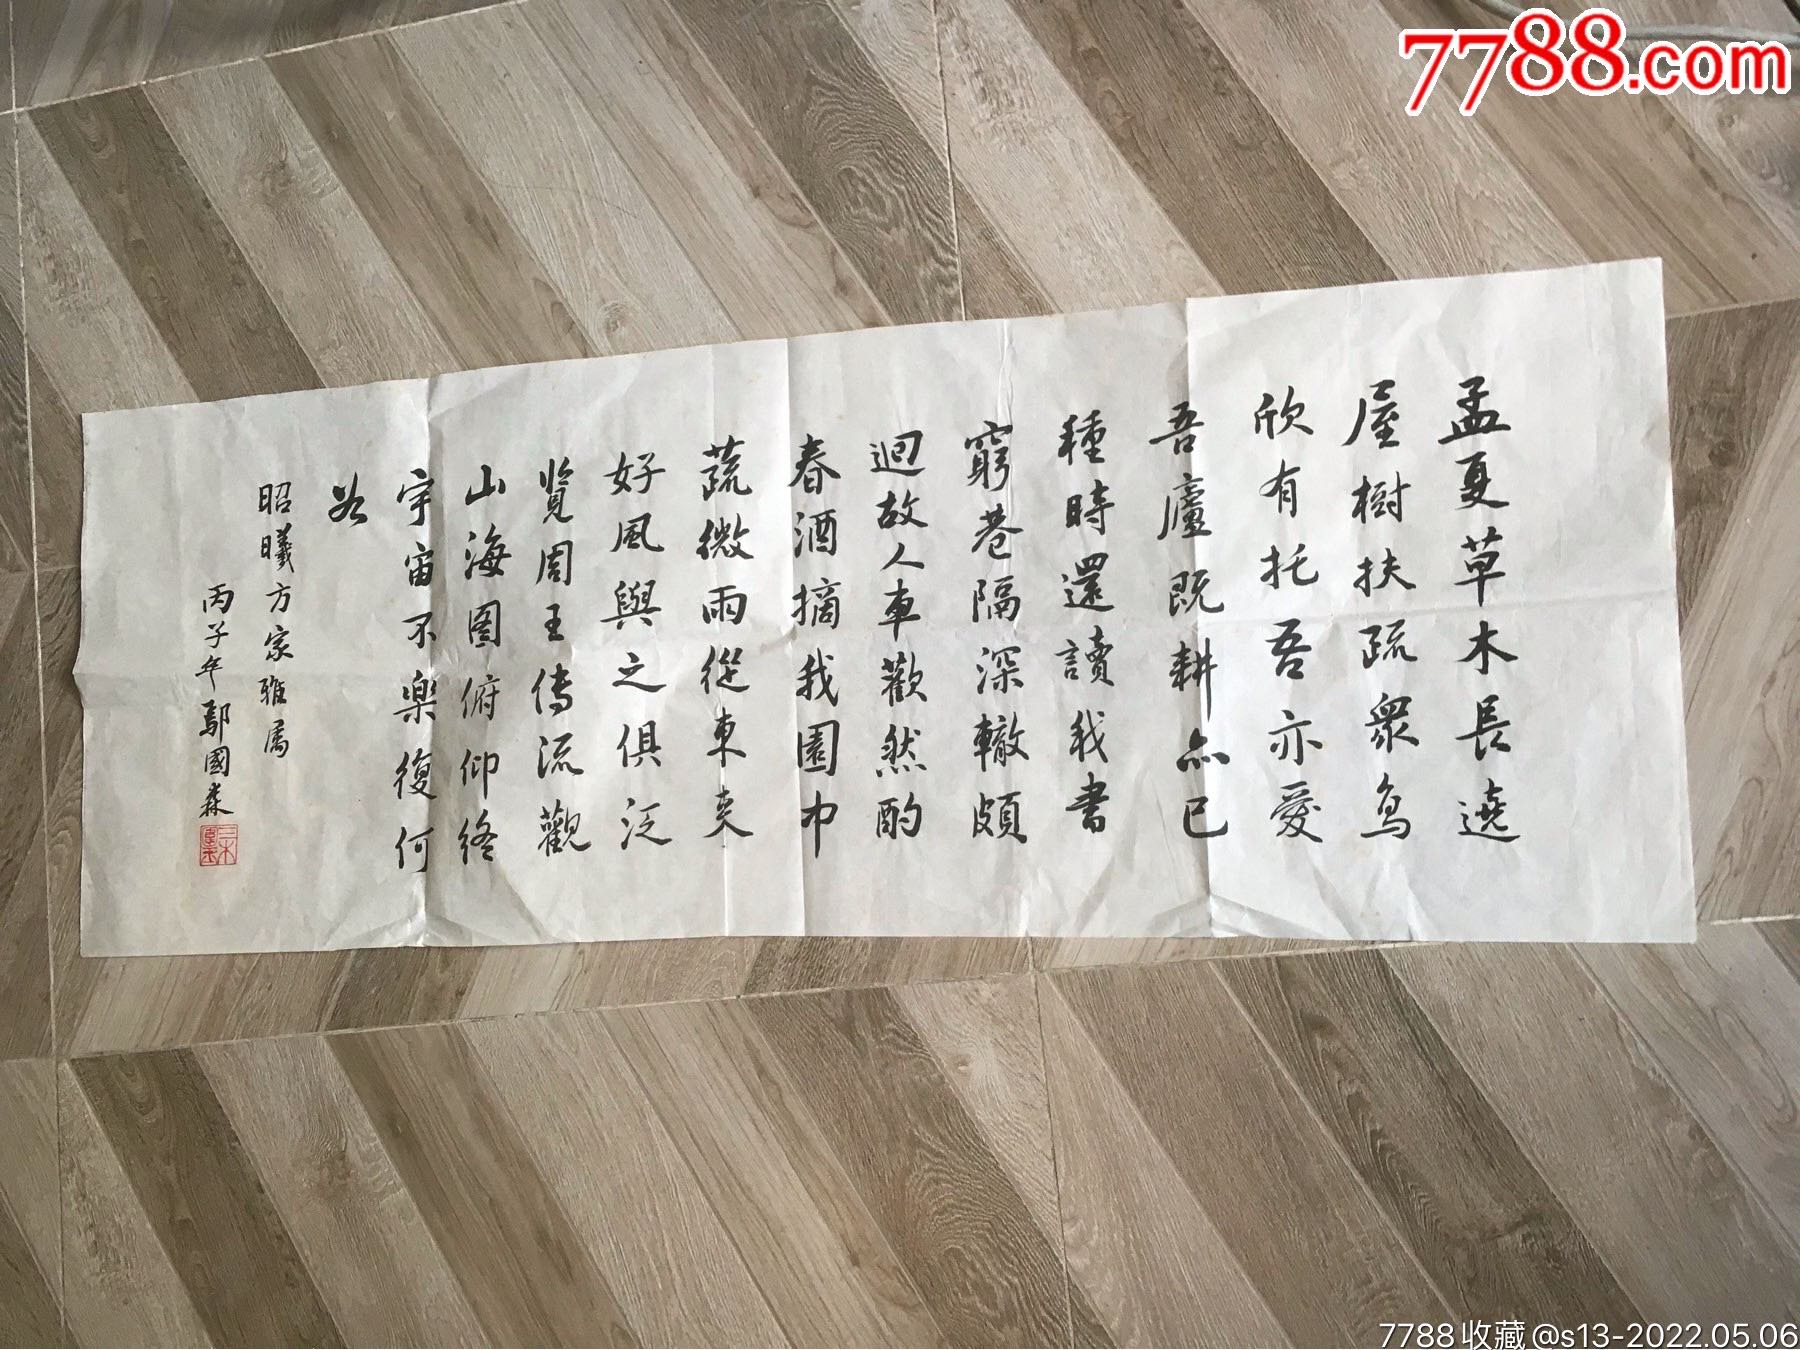 7788.com
孟夏草木長遶
屋樹扶疏衆鳥
欣有托吾亦愛
吾廬既耕亦已
種時還讀我書
窮巷隔深轍頗
迴故人車歡然酌
春酒摘我園中
蔬微雨從東来
好風與之俱泛
覽周王傳流觀
山海图俯仰終
宇宙不樂復何
如
昭曦方家雅属
丙子年鄢國森
7788收藏@s13-2022.05.06